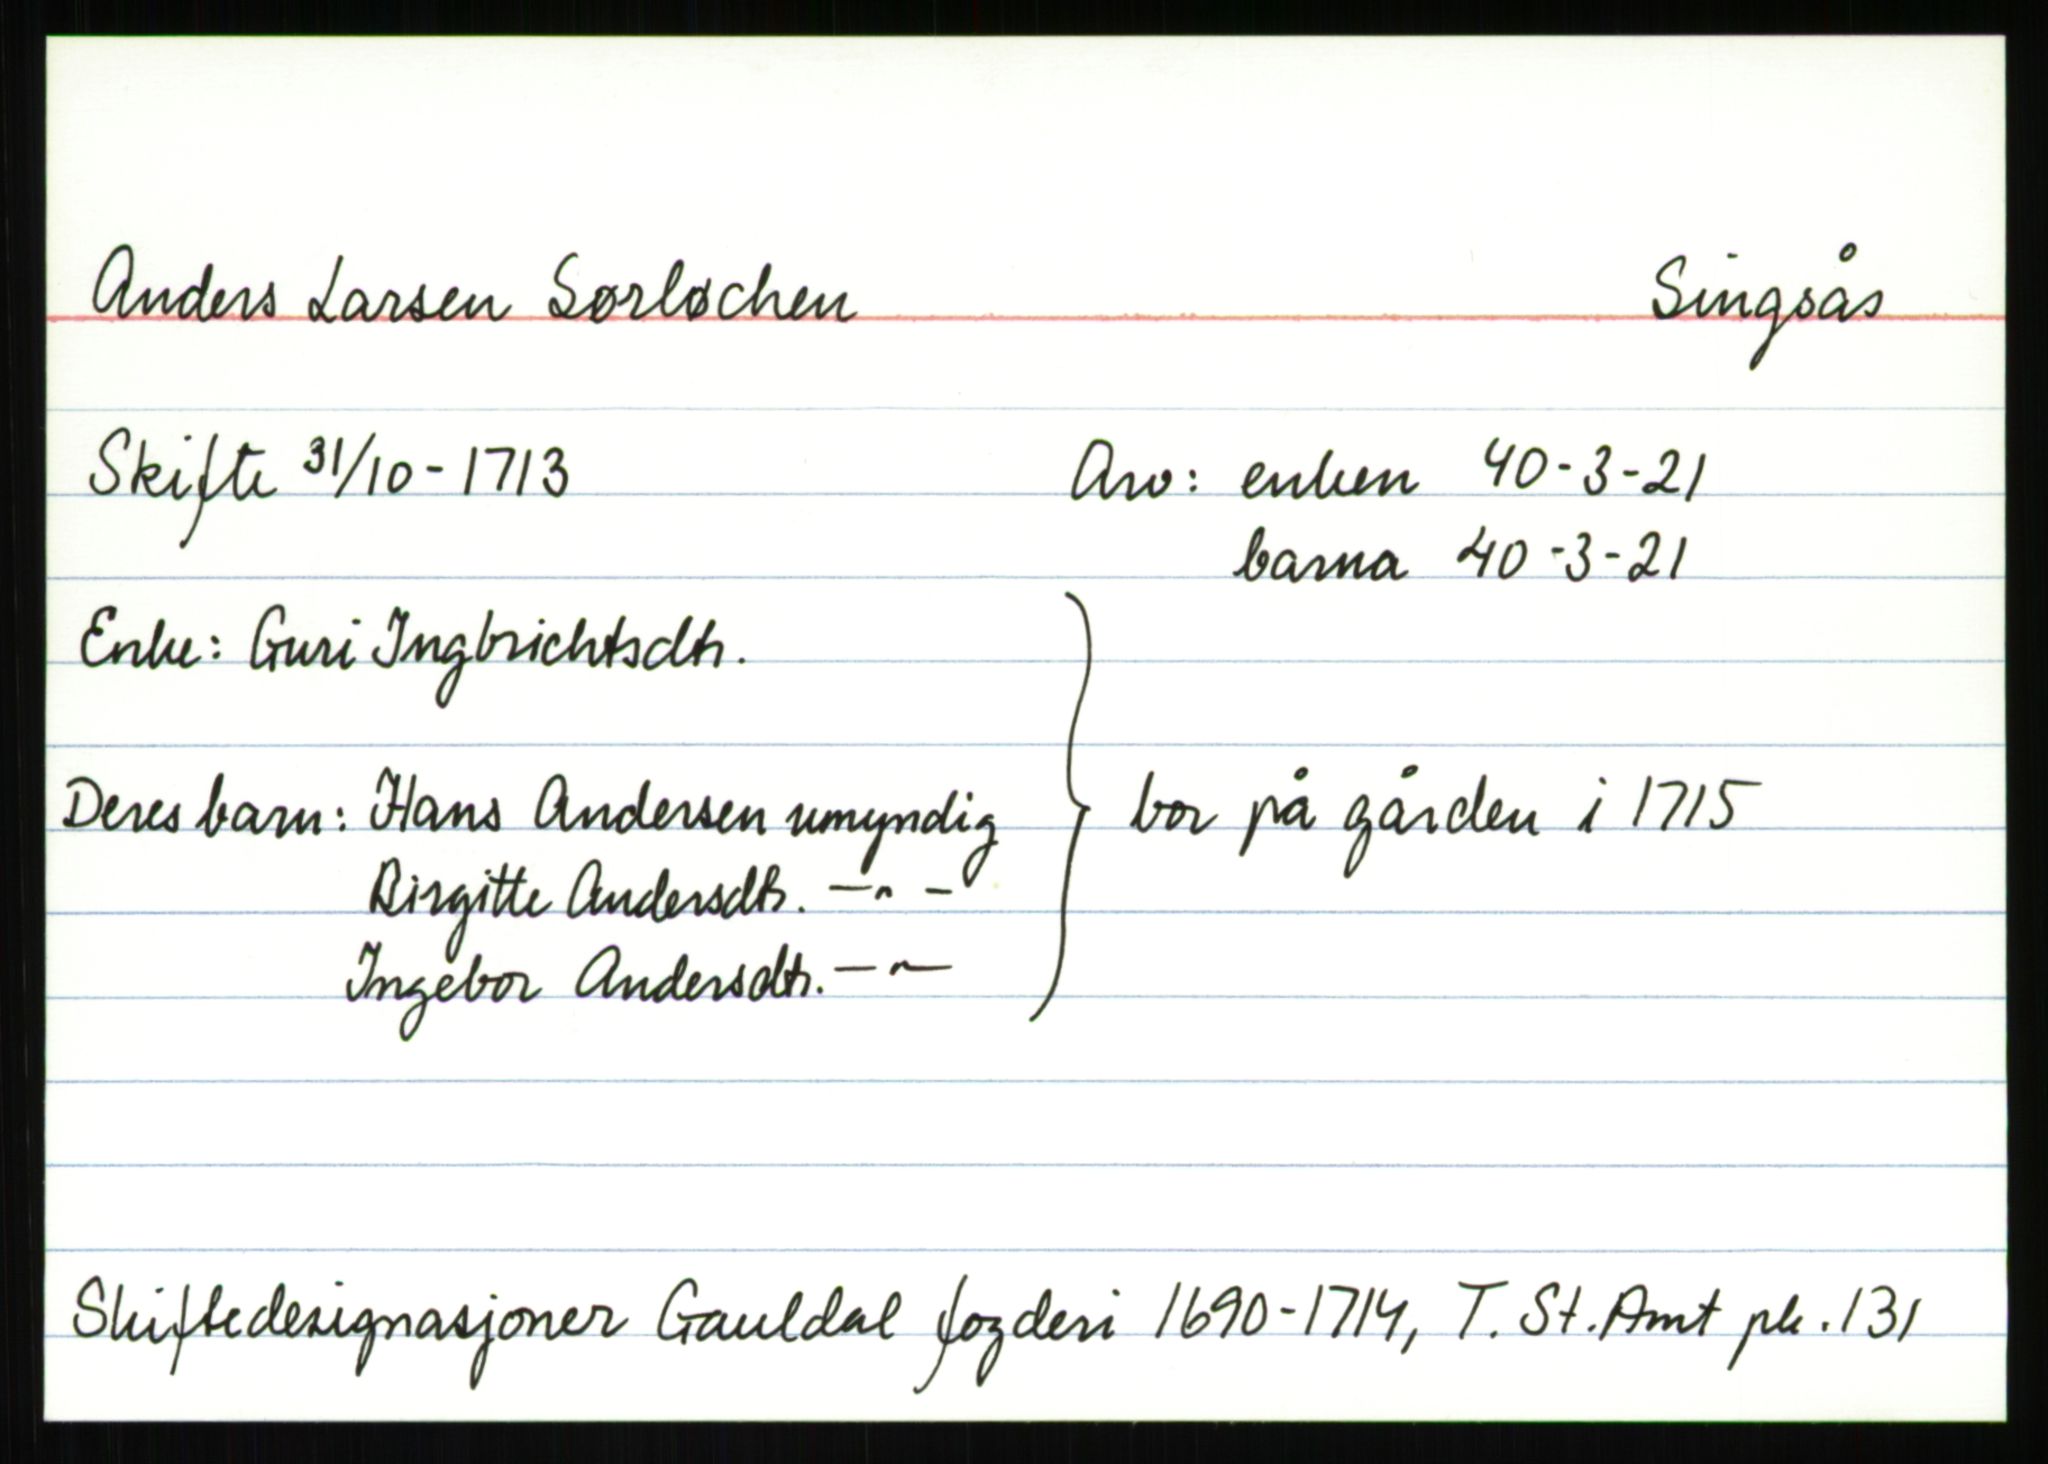 Anders Larsen Sørløchen Singsås
Skifte 31/10-1713 Arv: enken 40-3-21
barna 40-3-21
Enke: Guri Ingbrichtsdtr.
Deres barn: Hans Andersen umyndig } bor på gården i 1715
Birgitte Andersdtr. —"—
Ingebor Andersdtr. —"—
Skiftedesignasjoner Gauldal fogderi 1690-1714, T. St. Amt pk. 131